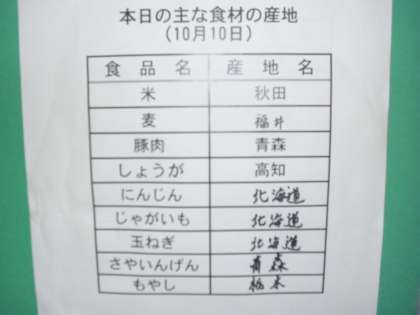 本日の主な食材の産地
(10月10日)
食品名 産地名
米 秋田
麦 福井
豚肉 青森
しょうが 高知
にんじん 北海道
じゃがいも 北海道
玉ねぎ 北海道
さやいんげん 青森
もやし 栃木